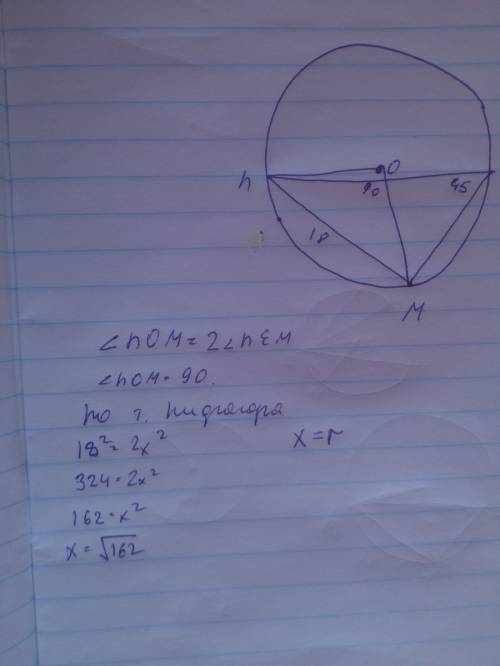 O
h
90
45
18
M
∠hOM = 2∠hEM
∠hOM = 90.
по т. Пифагора
18² = 2x²
x = r
324 = 2x²
162 = x²
x = √162